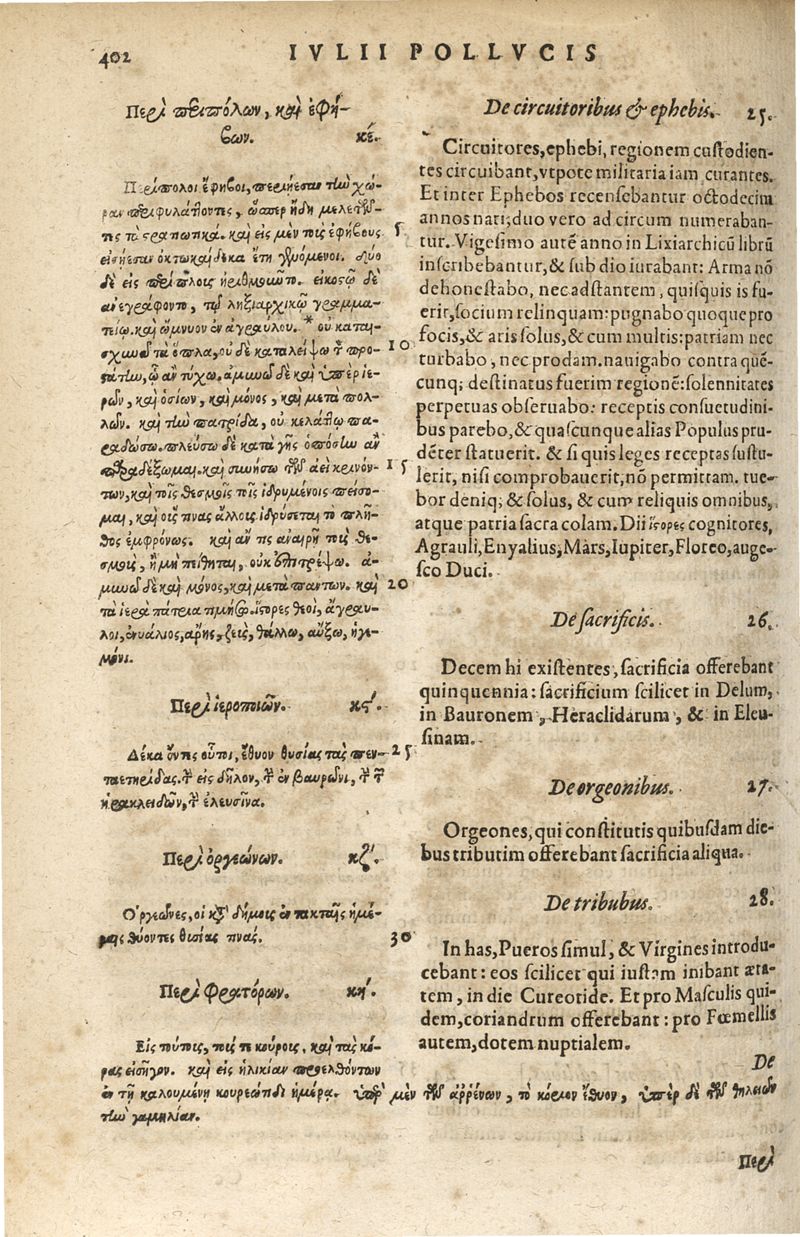 402
IVLII POLLVCIS
Περὶ περιπόλων, καὶ ἐφή-
βων. κέ.
Περίπολοι ἔφηβοι, περιῄεσαν τὴν χώ-
ραν περιφυλάττοντες, ὥσπερ ἤδη μελετῶν-
τες τὰ στρατιωτικά. καὶ εἰς μὲν τοὺς ἐφήβους
εἰσῄεσαν ὀκτωκαίδεκα ἔτη γενόμενοι. δύο
δὲ εἰς περιπόλοις ἠριθμοῦντο. εἰκοστῷ δὲ
ἀνεγράφοντο, τῷ ληξιαρχικῷ γραμμα-
τείῳ. καὶ ὤμνυον ἐν ἀγραύλου. * οὐ καται-
σχυνῶ τὰ ὅπλα, οὐδὲ καταλείψω τὸν προ-
στάτην, ᾧ ἂν τύχω. ἀμυνῶ δὲ καὶ ὑπὲρ ἱε-
ρῶν, καὶ ὁσίων, καὶ μόνος, καὶ μετὰ πολ-
λῶν. καὶ τὴν πατρίδα, οὐκ ἐλάττω πα-
ραδώσω. πλεύσω δὲ κατὰ γῆς ὁπόσην ἂν
παραδέξωμαι. καὶ συνήσω τῶν ἀεὶ κρινόν-
των, καὶ τοῖς θεσμοῖς τοῖς ἱδρυμένοις πείσο-
μαι, καὶ οὕς τινας ἄλλοις ἱδρύσεται τὸ πλῆ-
θος ἐμφρόνως. καὶ ἄν τις ἀναιρῇ τοὺς θε-
σμοὺς, ἢ μὴ πείθηται, οὐκ ἐπιτρέψω. ἀ-
μυνῶ δὲ καὶ μόνος, καὶ μετὰ παντων. καὶ
τὰ ἱερὰ πάτρια τιμήσω. ἵστορες θεοὶ, ἄγραυ-
λοι, ἐνυάλιος, ἄρης, ζεὺς, θάλλω, αὔξω, ἡγε-
μόνι.
Περὶ ἱεροποιῶν. κϛ΄.
Δέκα ὄντες οὗτοι, ἔθυον θυσίας τὰς πεν-
ταετηρίδας. τὴν εἰς δῆλον, τὴν ἐν βαυρῶνι, τὴν τῶν
ἡρακλειδῶν, τὴν ἐλευσῖνα.
Περὶ ὀργεώνων. κζ΄.
Ὀργεῶνες, οἱ κατὰ δήμους ἐν τακταῖς ἡμέ-
ραις θύοντες θυσίας τινάς.
Περὶ Φρατόρων. κή.
Εἰς τούτοις, τούς τε κούροις, καὶ τὰς κό-
ρας εἰσῆγον. καὶ εἰς ἡλικίαν προελθόντων
ἐν τῇ καλουμένῃ κουρεώτιδι ἡμέρᾳ. ὑπὲρ μὲν τῶν ἀρρένων, τὸ κόριον ἔθυον, ὑπὲρ δὲ τῶν θηλειῶν
τὴν γαμηλίαν.
5
10
15
20
25
30
De circuitoribus & ephebis. 25.
Circuitores, ephebi, regionem custodien-
tes circuibant, vtpote militaria iam curantes.
Et inter Ephebos recensebantur octodecim
annos nati; duo vero ad circum numeraban-
tur. Vigesimo autē anno in Lixiarchicū librū
inscribebantur, & sub dio iurabant: Arma nō
dehonestabo, nec adstantem, quisquis is fu-
erit, socium relinquam: pugnabo quoque pro
focis, & aris solus, & cum multis: patriam nec
turbabo, nec prodam. nauigabo contra quē-
cunq; destinatus fuerim regionē: solennitates
perpetuas obseruabo: receptis consuetudini-
bus parebo, & quascunque alias Populus pru-
dēter statuerit. & si quis leges receptas sustu-
lerit, nisi comprobauerit, nō permittam. tue-
bor deniq; & solus, & cum reliquis omnibus,
atque patria sacra colam. Dii ἵστορες cognitores,
Agrauli, Enyalius, Mars, Iupiter, Floreo, auge-
sco Duci.
De sacrificis. 26.
Decem hi existentes, sacrificia offerebant
quinquennia: sacrificium scilicet in Delum,
in Bauronem, Heraclidarum, & in Eleu-
sinam.
De orgeonibus. 27.
Orgeones, qui constitutis quibusdam die-
bus tributim offerebant sacrificia aliqua.
De tribubus. 28.
In has, Pueros simul, & Virgines introdu-
cebant: eos scilicet qui iustam inibant æta-
tem, in die Cureotide. Et pro Masculis qui-
dem, coriandrum offerebant: pro Fœmellis
autem, dotem nuptialem.
De
Περὶ